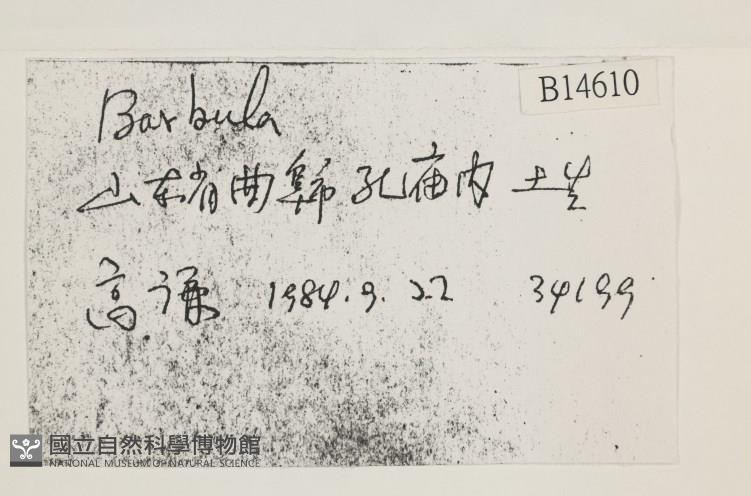 B14610
Barbula
山东省曲阜 孔庙内 土生
高谦 1984.9.22 34199
國立自然科學博物館
NATIONAL MUSEUM OF NATURAL SCIENCE